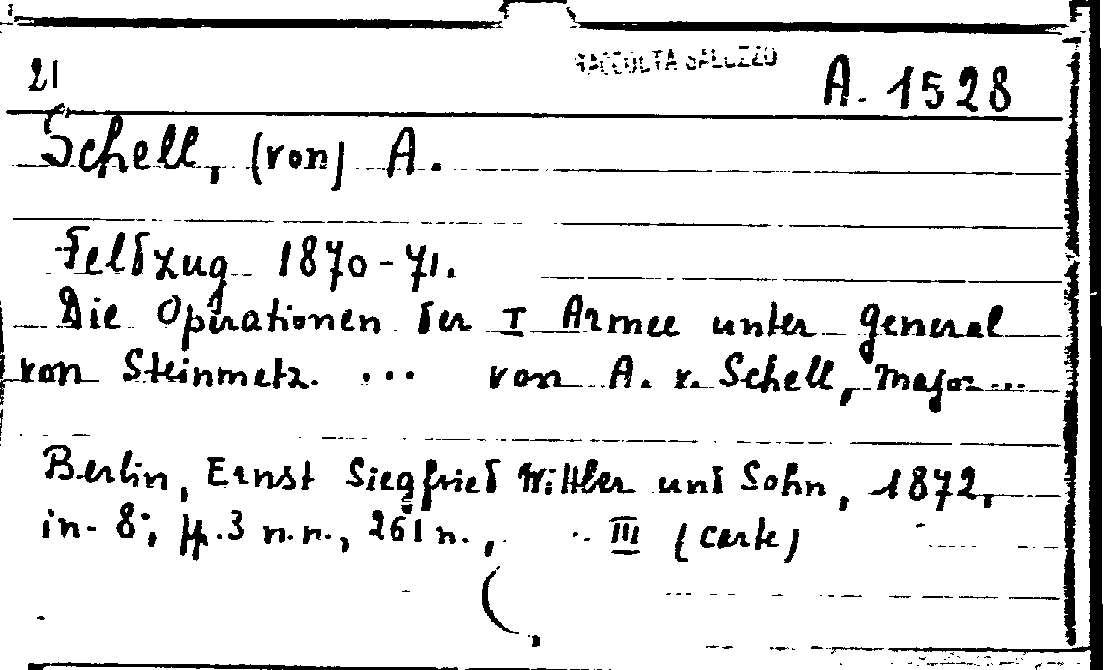 21 RACCOLTA SALUZZO A. 1528
Schell, (von) A.
Feldzug 1870-71.
Die Operationen der I Armee unter General
von Steinmetz. ... von A. v. Schell, Major...
Berlin, Ernst Siegfried Mittler und Sohn, 1872,
in-8°, pp. 3 n.n., 261 n., .. III (carte)